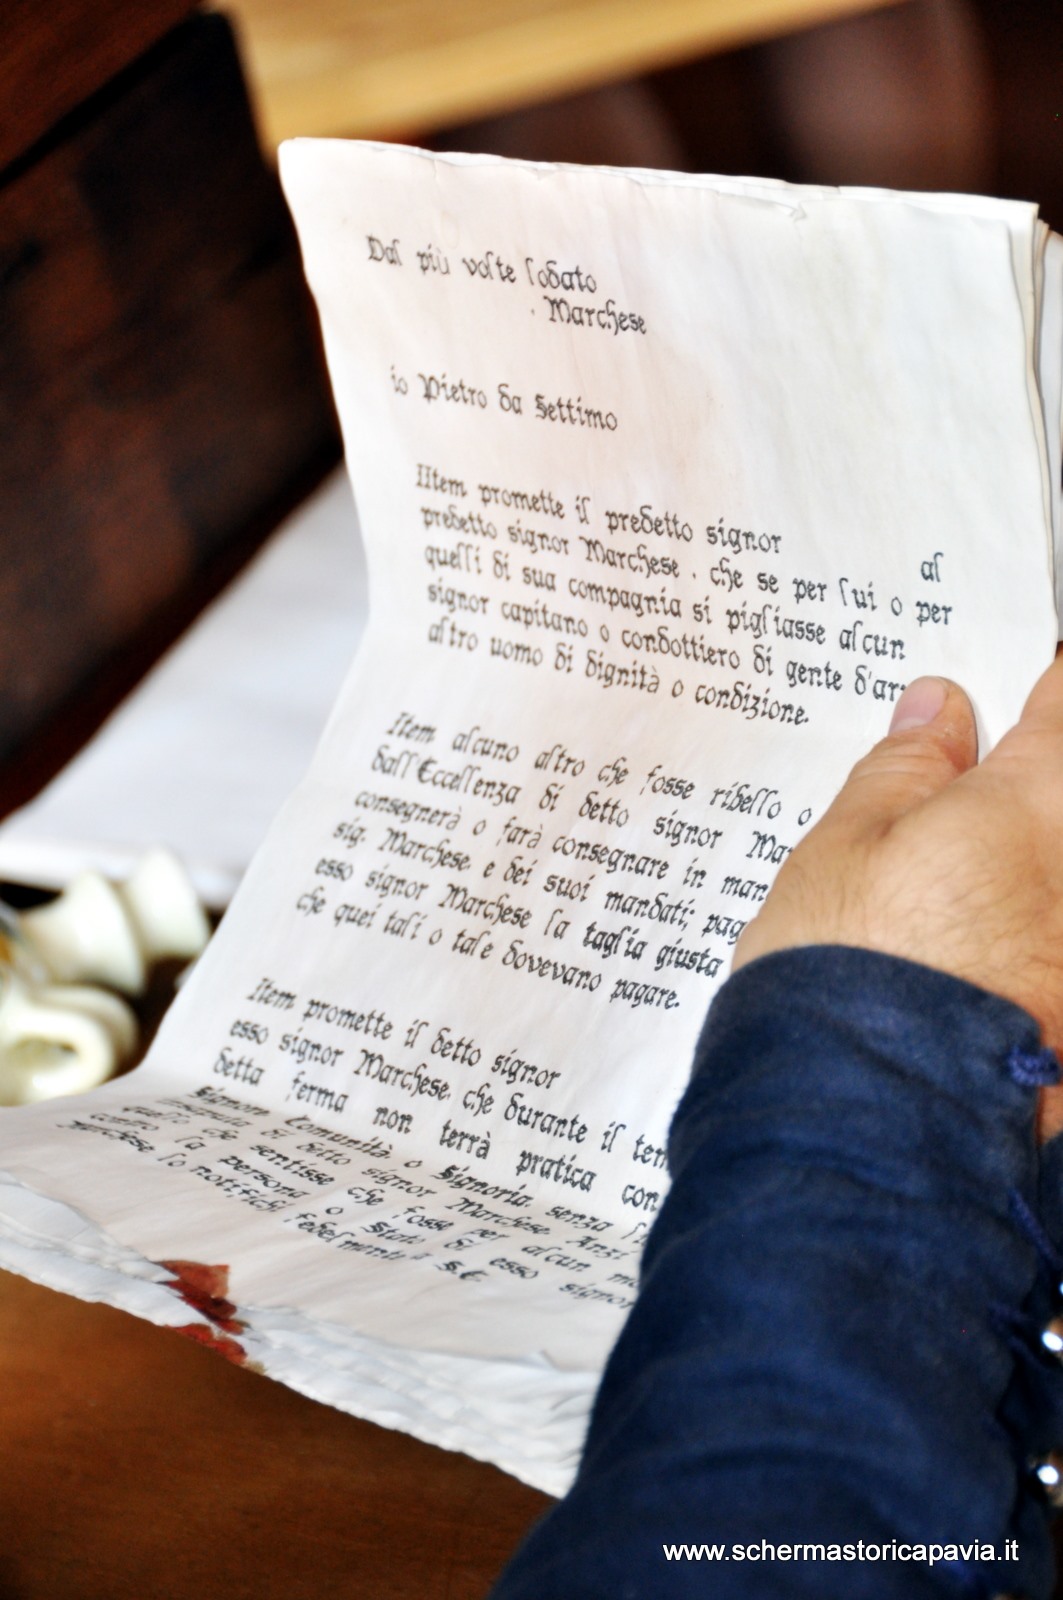 Dal più volte lodato
Marchese
io Pietro da Settimo
IItem promette il predetto signor al
predetto signor Marchese . che se per lui o per
quelli di sua compagnia si pigliasse alcun
signor capitano o condottiero di gente d'ar
altro uomo di dignità o condizione.
Item alcuno altro che fosse ribello o
dall'Eccellenza di detto signor Mar
consegnerà o farà consegnare in man
sig. Marchese. e dei suoi mandati; pag
esso signor Marchese la taglia giusta
che quei tali o tale dovevano pagare.
Item promette il detto signor
esso signor Marchese. che durante il tem
detta ferma non terrà pratica con
Signore Comunità. o Signoria. senza
di detto signor Marchese. Anzi
quello che sentisse che fosse per alcun mo
contro la persona o Stato di esso signor
Marchese lo notifichi fedelmente a S.E.
www.schermastoricapavia.it